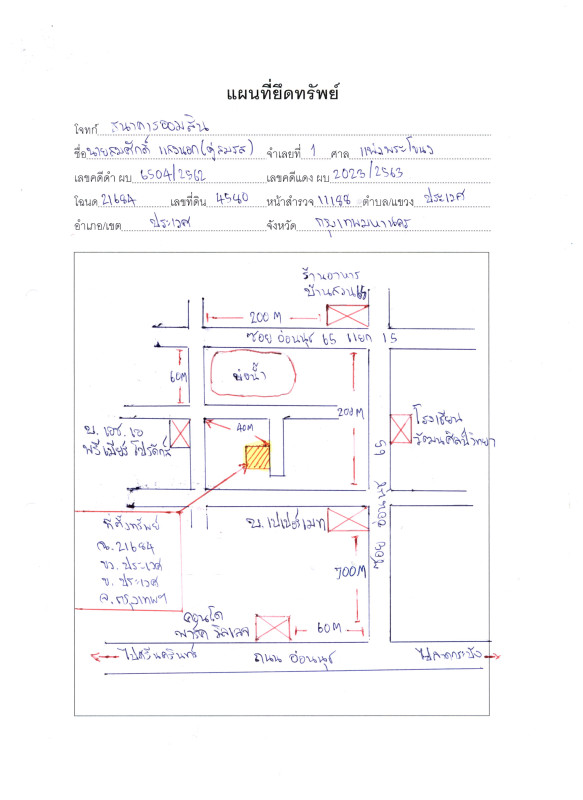 แผนที่ยึดทรัพย์
โจทก์ ธนาคารออมสิน
ชื่อ นายสมศักดิ์ แสงนอก (คู่สมรส) จำเลยที่ 1 ศาล แพ่งพระโขนง
เลขคดีดำ ผบ 6504/2562 เลขคดีแดง ผบ 2023/2563
โฉนด 21684 เลขที่ดิน 4540 หน้าสำรวจ 11188 ตำบล/แขวง ประเวศ
อำเภอ/เขต ประเวศ จังหวัด กรุงเทพมหานคร
ร้านอาหาร
บ้านสวน
200 M
ซอย อ่อนนุช 65 แยก 15
60M
บ่อน้ำ
200M
40M
บ. เอช. เอ
พรีเมียร์ โปรดักส์
โรงเรียน
วัฒนศิลป์วิทยา
ซอย อ่อนนุช 65
ที่ตั้งทรัพย์
ฉ. 21684
ขว. ประเวศ
ข. ประเวศ
จ. กรุงเทพฯ
บ. เปเปอร์เมท
700M
คอนโด
พาร์ค วิลเลจ
60M
ไปศรีนครินทร์
ถนน อ่อนนุช
ไปลาดกระบัง